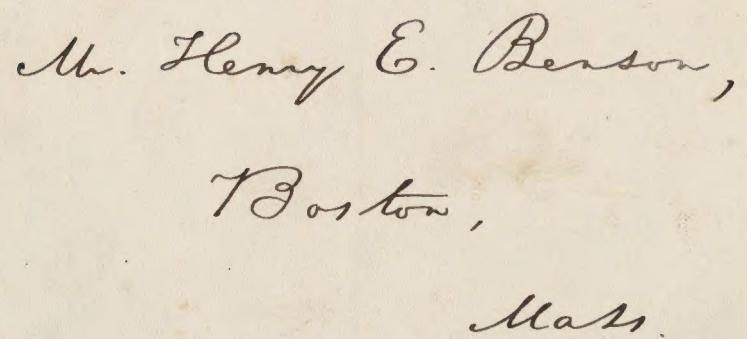 Mr. Henry E. Benson,
Boston,
Mass.